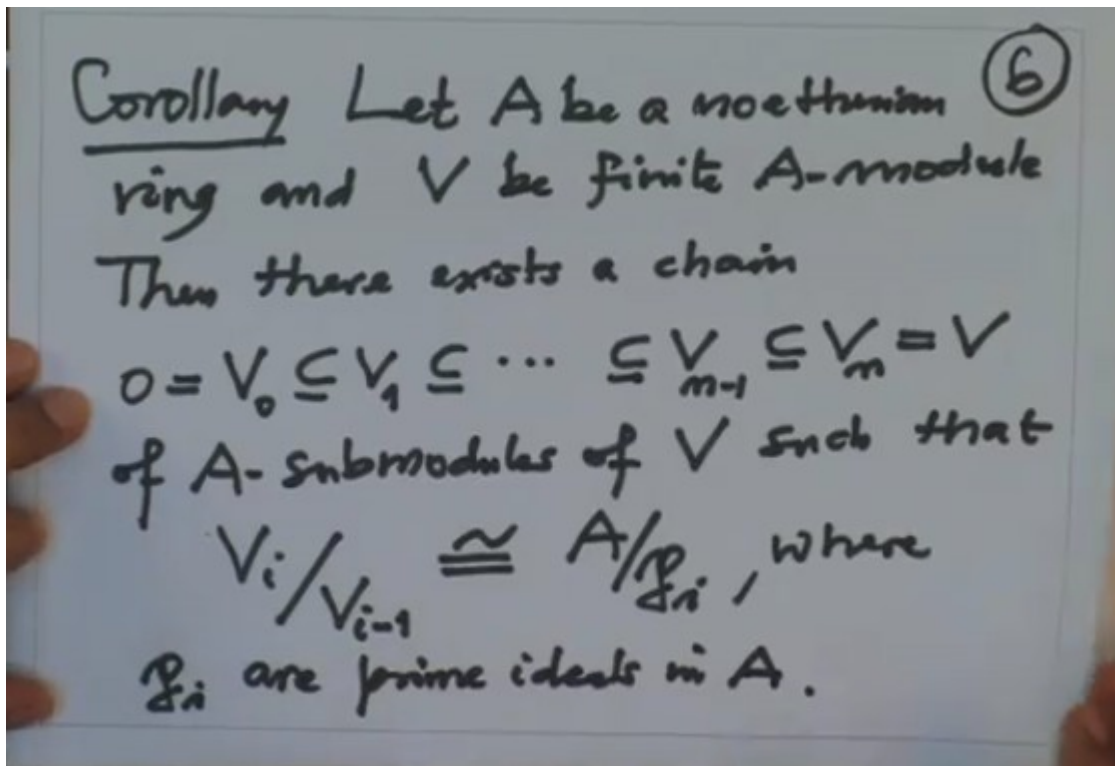 Corollary Let A be a noetherian ⑥
ring and V be finite A-module
Then there exists a chain
0 = V₀ ⊆ V₁ ⊆ ··· ⊆ Vₘ₋₁ ⊆ Vₘ = V
of A-submodules of V such that
Vᵢ/Vᵢ₋₁ ≅ A/𝔭ᵢ, where
𝔭ᵢ are prime ideals in A.